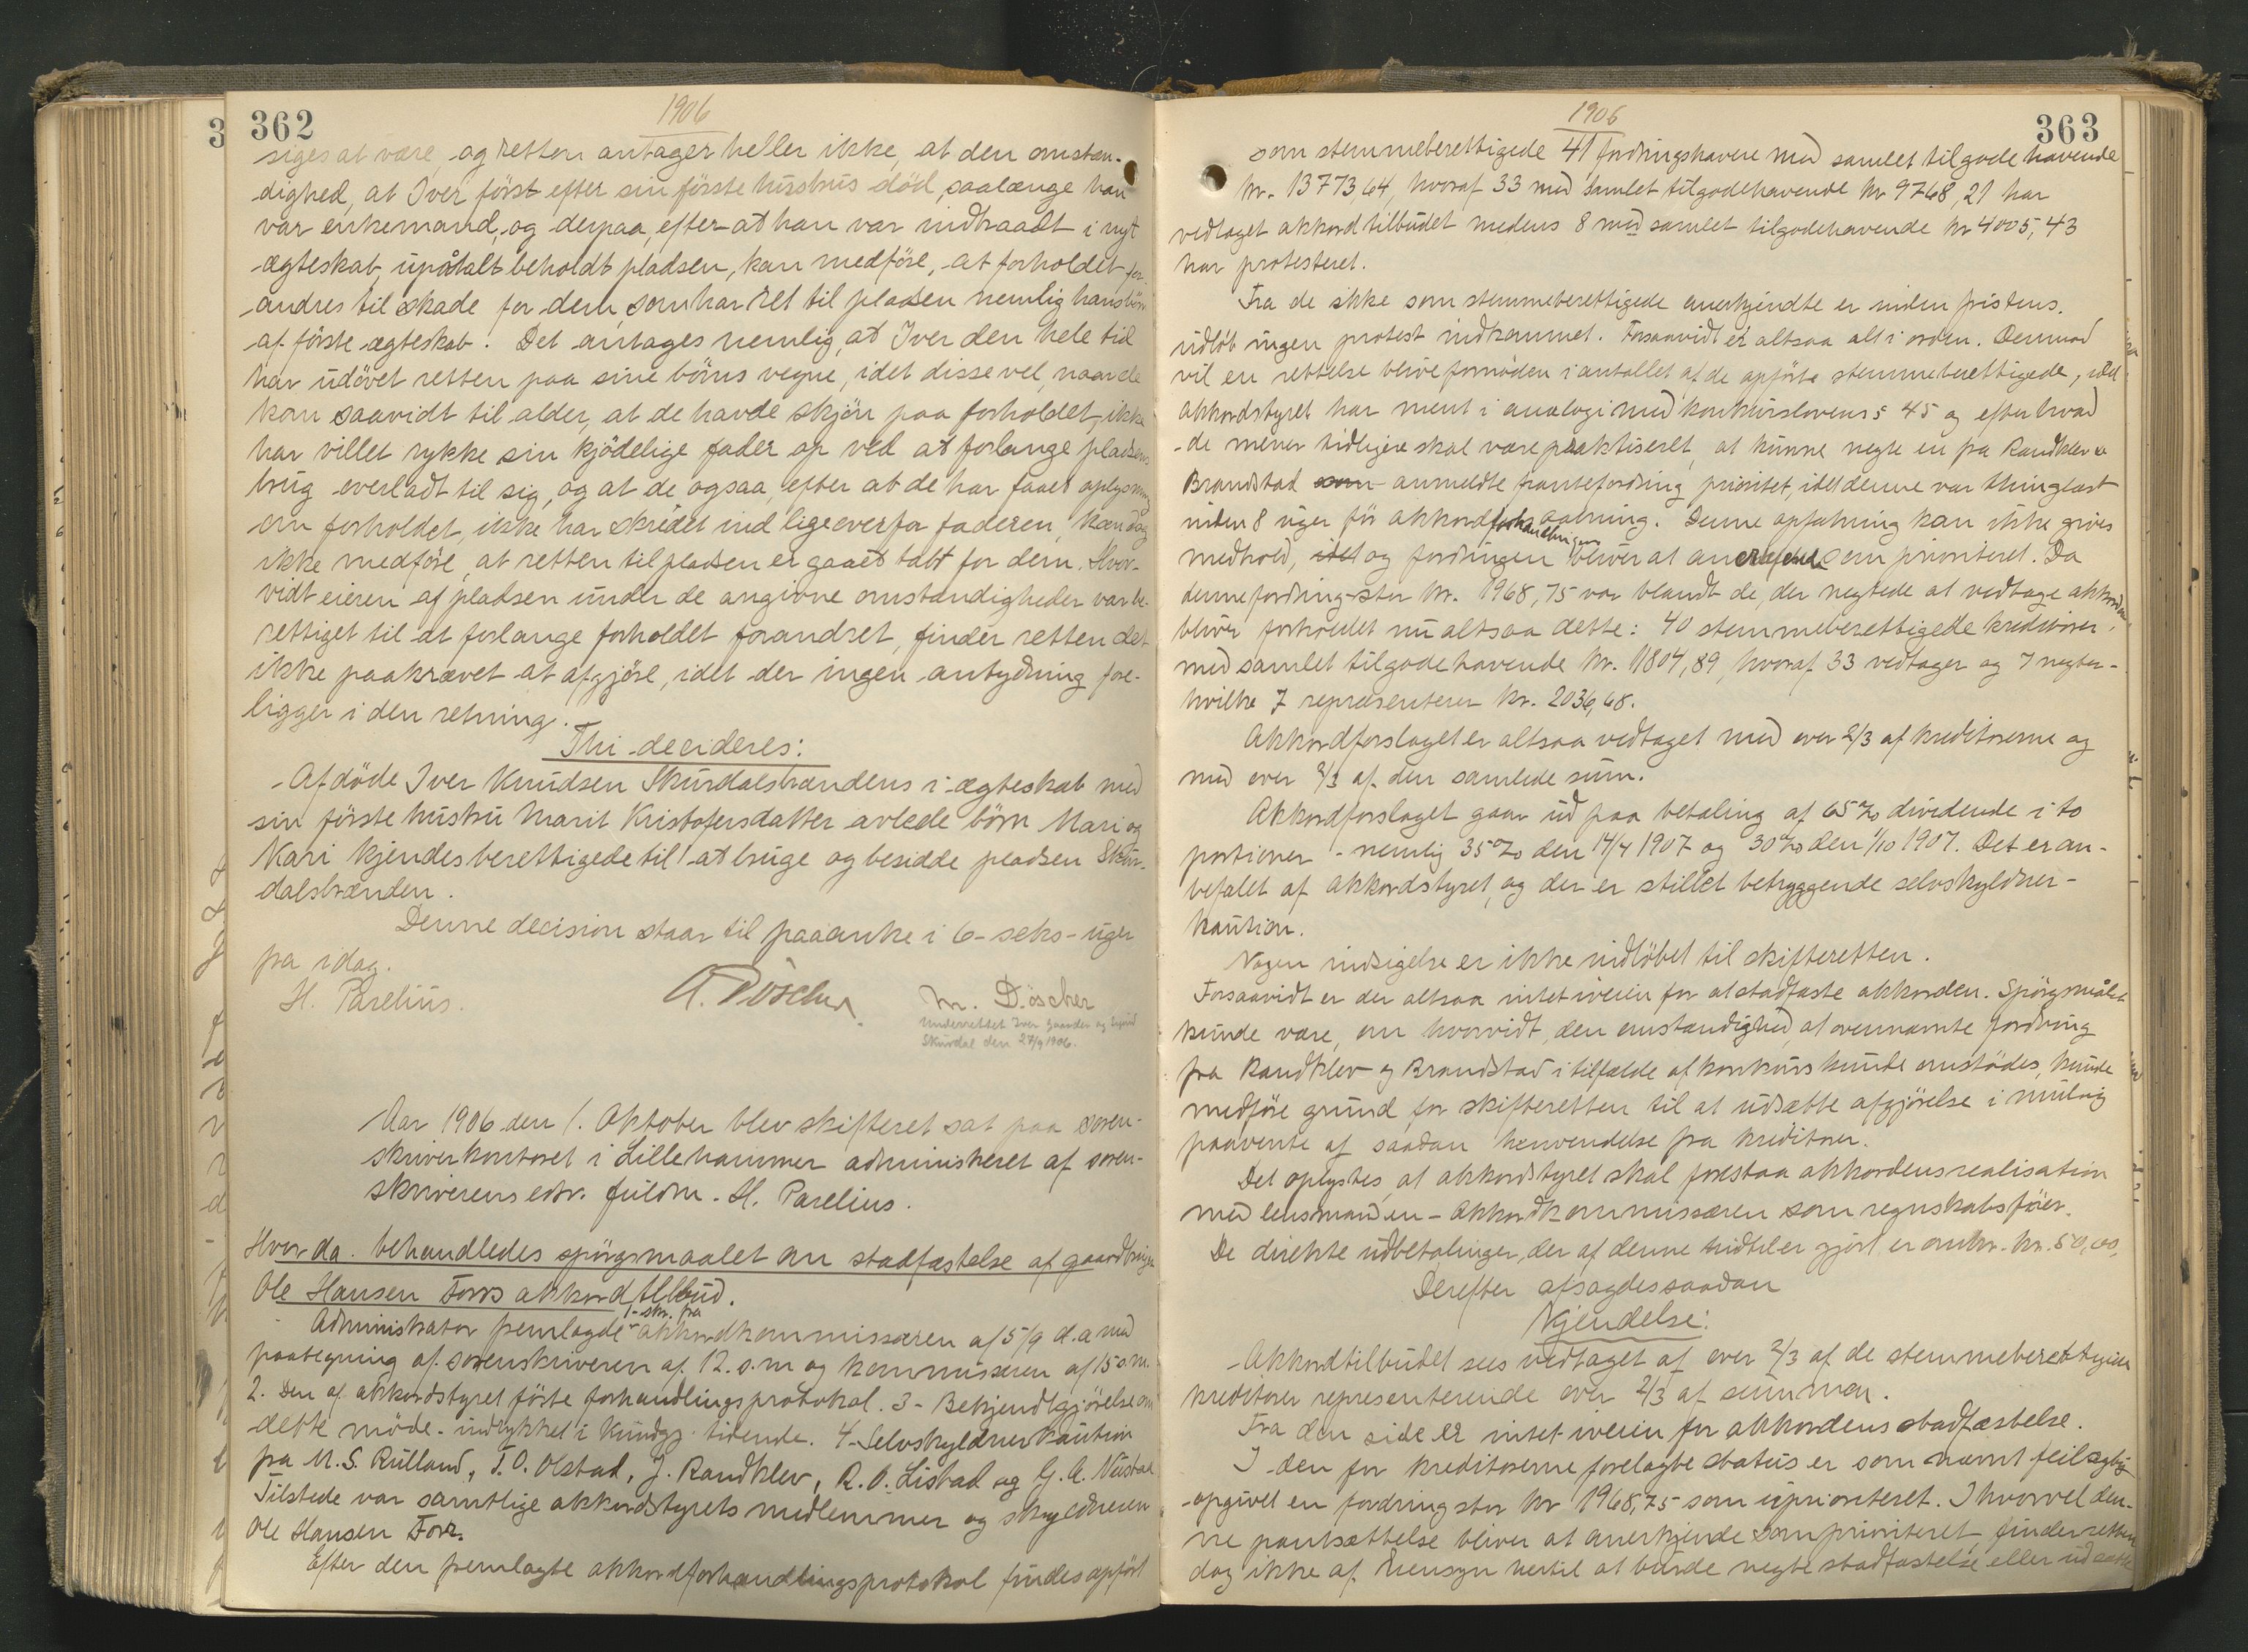 362
1906
siges at være, og retten antager heller ikke, at den omstæn-
dighed, at Iver først efter sin første hustrus død, saalænge han
var enkemand, og derpaa, efter at han var indtraadt i nyt
ægteskab, upåtalt beholdt pladsen, kan medføre, at forholdet for-
andres til skade for dem, som har ret til pladsen nemlig hans børn
af første ægteskab. Det antages nemlig, at Iver den hele tid
har udövet retten paa sine börns vegne, idet disse vel, naar de
kom saavidt til alder, at de havde skjön paa forholdet, ikke
har villet rykke sin kjödelige fader op ved at forlange pladsens
brug overladt til sig, og at de ogsaa, efter at de har faaet oplysning
om forholdet, ikke har skridet ind ligeoverfor faderen, kan dog
ikke medföre, at retten til pladsen er gaaet tabt for dem. Hvor-
vidt eieren af pladsen under de angivne omstændigheder var be-
rettiget til at forlange forholdet forandret, finder retten det
ikke paakrævet at afgjöre, idet der ingen antydning fore-
ligger i den retning.
Thi decideres:
Afdöde Iver Knudsen Skurdalsbrændens i ægteskab med
sin förste hustru Marit Kristofersdatter avlede börn Mari og
Kari kjendes berettigede til at bruge og besidde pladsen Skur-
dalsbrænden.
Denne decision staar til paaanke i 6 - seks - uger
fra idag.
H. Parelius. A. Döscher M. Döscher
Underrettet Iver og
Skurdal den 27/9 1906.
Aar 1906 den 1. Oktober blev skifteret sat paa soren-
skriverkontoret i Lillehammer administreret af soren-
skriverens edsv. fuldm. H. Parelius.
Hvor da behandledes spörgsmaalet om stadfæstelse af gaardbruger
Ole Hansen Forrs akkordtilbud.
Administrator fremlagde 1- skr. fra akkordkommissæren af 5/9 d.a. med
paategning af sorenskriveren af 12. s.m og kommissæren af 15 s.m.
2. Den af akkordstyret förte forhandlingsprotokol. 3 - Bekjendtgjörelse om
dette möde - indrykket i Kundgj. tidende. 4 - Selvskyldnerkaution
fra M. S. Rulland, T. O. Olstad, J. Randklev, R. O. Listad og G. A. Nustad
Tilstede var samtlige akkordstyrets medlemmer og skyldneren
Ole Hansen Forr.
Efter den fremlagte akkordforhandlingsprotokol findes opfört
363
1906
som stemmeberettigede 41 fordringshavere med samlet tilgodehavende
kr. 13773,64, hvoraf 33 med samlet tilgodehavende kr 9768,21 har
vedtaget akkordtilbudet medens 8 med samlet tilgodehavende kr 4005,43
har protesteret.
Fra de ikke som stemmeberettigede anerkjendte er inden fristens
udlöb ingen protest indkommet. Forsaavidt er altsaa alt i orden. Derimod
vil en rettelse blive fornöden i antallet af de opförte stemmeberettigede, idet
akkordstyret har ment i analogi med konkurslovens § 45 og efter hvad
de mener tidligere skal være praktiseret, at kunne negte en fra Randklev &
Brandstad som anmeldte pantefordring prioritet, idet denne var thinglæst
inden 8 uger för akkordforhandlingens aabning. Denne opfatning kan ikke gives
medhold, idet og fordringen bliver at anerkjende som prioriteret. Da
denne fordring stor kr. 1968,75 var blandt de, der negtede at vedtage akkorden
bliver forholdet nu altsaa dette: 40 stemmeberettigede kreditorer,
med samlet tilgodehavende kr. 11804,89, hvoraf 33 vedtager og 7 negter -
hvilke 7 repræsenterer kr. 2036,68.
Akkordforslaget er altsaa vedtaget med over 2/3 af kreditorerne og
med over 2/3 af den samlede sum.
Akkordforslaget gaar ud paa betaling af 65 % dividende i to
portioner - nemlig 35 % den 14/4 1907 og 30 % den 1/10 1907. Det er an-
befalet af akkordstyret, og der er stillet betryggende selvskyldner-
kaution.
Nogen indsigelse er ikke indlöbet til skifteretten.
Forsaavidt er der altsaa intet iveien for at stadfæste akkorden. Spörgsmålet
kunde være, om hvorvidt, den omstændighed, at ovennævnte fordring
fra Randklev og Brandstad i tilfælde af konkurs kunde omstödes, kunde
medföre grund for skifteretten til at udsætte afgjörelse i mulig
paavente af saadan henvendelse fra kreditorer.
Det oplystes, at akkordstyret skal forestaa akkordens realisation
med lensmanden - akkordkommissæren som regnskabsförer.
De direkte udbetalinger, der af denne hidtil er gjort, er omkr. kr. 50,00,
Derefter afsagdes saadan
Kjendelse:
Akkordtilbudet sees vedtaget af over 2/3 af de stemmeberettigede
kreditorer representerende over 2/3 af summen.
Fra den side er intet iveien for akkordens stadfæstelse.
I den for kreditorerne forelagte status er som nævnt feilagtig
opgivet en fordring stor kr 1968,75 som uprioriteret. Ihvorvel den-
ne pantsættelse bliver at anerkjende som prioriteret, finder retten
dog ikke af hensyn hertil at burde negte stadfæstelse eller udsætte